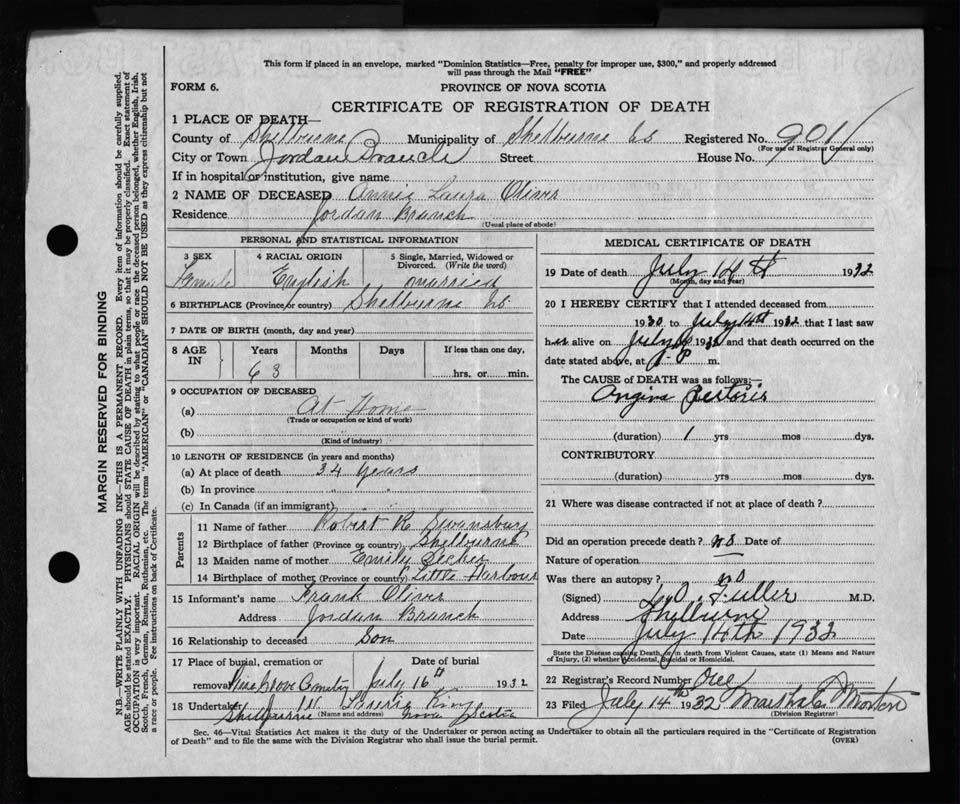 This form if placed in an envelope, marked "Dominion Statistics—Free, penalty for improper use, $300," and properly addressed
will pass through the Mail "FREE"
FORM 6.
PROVINCE OF NOVA SCOTIA
CERTIFICATE OF REGISTRATION OF DEATH
1 PLACE OF DEATH—
County of Shelburne Municipality of Shelburne Co Registered No. 901
(For use of Registrar General only)
City or Town Jordan Branch Street House No.
If in hospital or institution, give name
2 NAME OF DECEASED Annie Laura Oliver
Residence Jordan Branch
(Usual place of abode)
PERSONAL AND STATISTICAL INFORMATION
3 SEX 4 RACIAL ORIGIN 5 Single, Married, Widowed or
Divorced. (Write the word)
Female English married
6 BIRTHPLACE (Province or country) Shelburne Co
7 DATE OF BIRTH (month, day and year)
8 AGE IN Years Months Days If less than one day,
63 hrs. or min.
9 OCCUPATION OF DECEASED
(a) At Home
(Trade or occupation or kind of work)
(b)
(Kind of industry)
10 LENGTH OF RESIDENCE (in years and months)
(a) At place of death 34 years
(b) In province " "
(c) In Canada (if an immigrant)
Parents
11 Name of father Robert R
12 Birthplace of father (Province or country) Shelburne
13 Maiden name of mother Emily
14 Birthplace of mother (Province or country) Little Harbour
15 Informant's name Frank Oliver
Address Jordan Branch
16 Relationship to deceased Son
17 Place of burial, cremation or Date of burial
removal Pine Grove Cemetery July 16th 1932
18 Undertaker King
Shelburne (Name and address) Nova Scotia
MEDICAL CERTIFICATE OF DEATH
19 Date of death July 14th 1932
(Month, day and year)
20 I HEREBY CERTIFY that I attended deceased from
1930 to July 14th 1932 that I last saw
her alive on July 1932 and that death occurred on the
date stated above, at P m.
The CAUSE OF DEATH was as follows:—
Angina Pectoris
(duration) 1 yrs mos dys.
CONTRIBUTORY
(duration) yrs mos dys.
21 Where was disease contracted if not at place of death?
Did an operation precede death? no Date of
Nature of operation
Was there an autopsy? no
(Signed) Fuller M.D.
Address Shelburne
Date July 14th 1932
State the Disease causing Death, or in death from Violent Causes, state (1) Means and Nature
of Injury, (2) whether Accidental, Suicidal or Homicidal.
22 Registrar's Record Number One
23 Filed July 14th 1932 Morton
(Division Registrar)
Sec. 46—Vital Statistics Act makes it the duty of the Undertaker or person acting as Undertaker to obtain all the particulars required in the "Certificate of Registration
of Death" and to file the same with the Division Registrar who shall issue the burial permit.
(OVER)
MARGIN RESERVED FOR BINDING
N.B.—WRITE PLAINLY WITH UNFADING INK—THIS IS A PERMANENT RECORD. Every item of information should be carefully supplied.
AGE should be stated EXACTLY. PHYSICIANS should STATE CAUSE OF DEATH in plain terms, so that it may be properly classified. Exact statement of
OCCUPATION is very important. RACIAL ORIGIN will be described by stating to what people or race the deceased person belonged, whether English, Irish,
Scotch, French, German, Russian, Ruthenian, etc. The terms "AMERICAN" or "CANADIAN" SHOULD NOT BE USED as they express citizenship but not
a race or people. See instructions on back of Certificate.